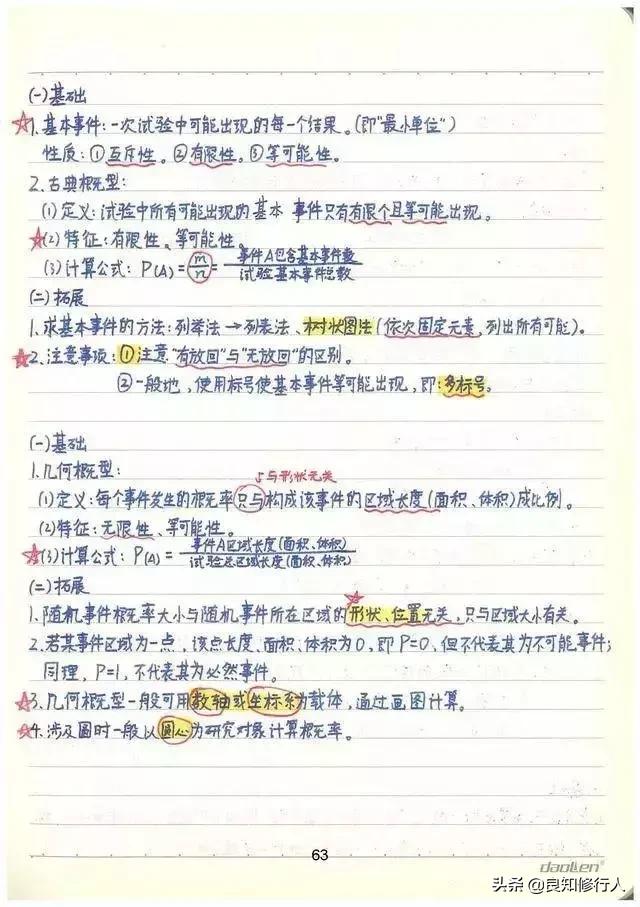 (一)基础
1.基本事件:一次试验中可能出现的每一个结果。(即"最小单位")
性质:①互斥性。②有限性。③等可能性。
2.古典概型:
(1)定义:试验中所有可能出现的基本事件只有有限个且等可能出现。
(2)特征:有限性、等可能性。
(3)计算公式:P(A)=m/n=事件A包含基本事件数/试验基本事件总数
(二)拓展
1.求基本事件的方法:列举法→列表法、树状图法(依次固定元素,列出所有可能)。
2.注意事项:①注意"有放回"与"无放回"的区别。
②一般地,使用标号使基本事件等可能出现,即:多标号。
(一)基础
1.几何概型:
与形状无关
(1)定义:每个事件发生的概率只与构成该事件的区域长度(面积、体积)成比例。
(2)特征:无限性、等可能性。
(3)计算公式:P(A)=事件A区域长度(面积、体积)/试验总区域长度(面积、体积)
(二)拓展
1.随机事件概率大小与随机事件所在区域的形状、位置无关,只与区域大小有关。
2.若某事件区域为一点,该点长度、面积、体积为0,即P=0,但不代表其为不可能事件;
同理,P=1,不代表其为必然事件。
3.几何概型一般可用数轴或坐标系为载体,通过画图计算。
4.涉及圆时一般以圆心为研究对象计算概率。
63
daolien
头条 @良知修行人